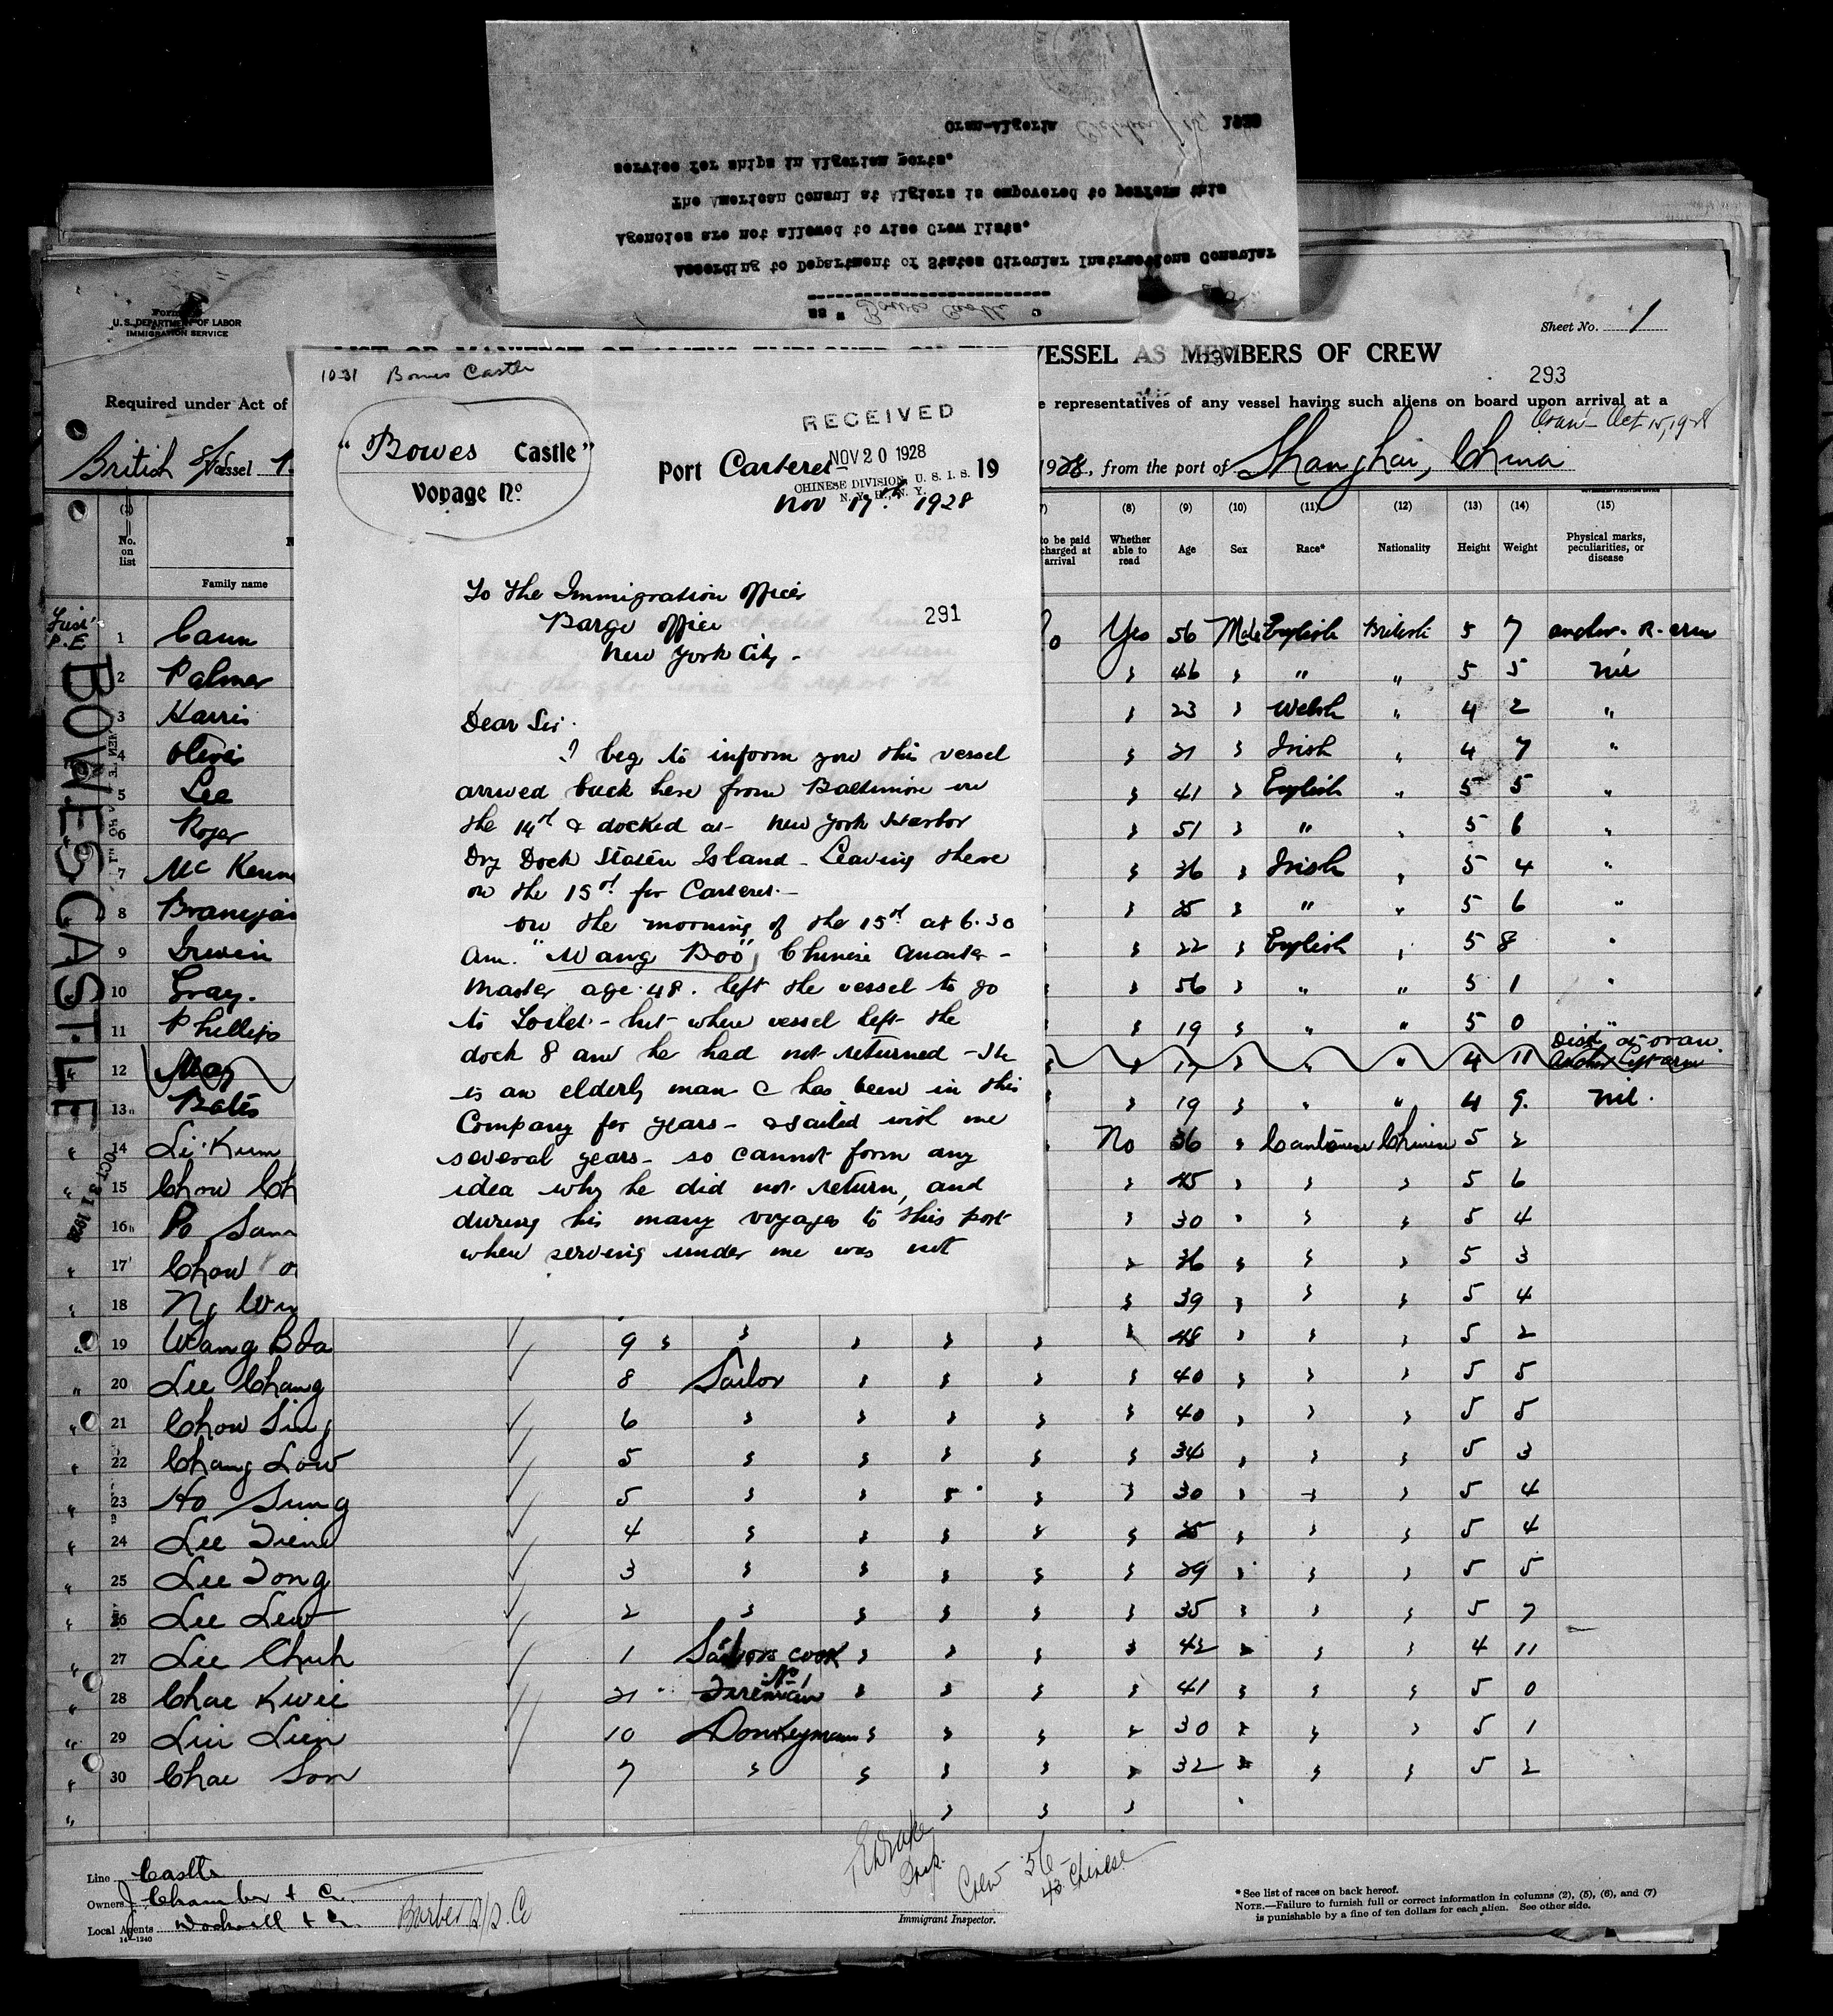 Oran-Algeria October 15, 1928
service for ships in Algerian ports.
The American Consul at Algiers is empowered to perform this
Agencies are not allowed to vise Crew Lists.
According to Department of States Circular Instructions Consular
ss " Bowes Castle "
Form
U. S. DEPARTMENT OF LABOR
IMMIGRATION SERVICE
Sheet No. 1
VESSEL AS MEMBERS OF CREW
293
Required under Act of
e representatives of any vessel having such aliens on board upon arrival at a
Oran - Oct 15, 1928
British Vessel
1928, from the port of Shanghai, China
1031 Bowes Castle
"Bowes Castle"
Voyage No
RECEIVED
NOV 20 1928
CHINESE DIVISION, U. S. I. S.
N. Y. H., N. Y.
Port Carteret 19
Nov 17th 1928
To the Immigration Officer
291
Barge Office
New York City -
Dear Sir.
I beg to inform you this vessel
arrived back here from Baltimore on
the 14th & docked at New York Harbor
Dry Dock Staten Island - Leaving there
on the 15th for Carteret. -
On the morning of the 15th at 6.30
am. "Wang Boo", Chinese Quarter-
Master age 48. left the vessel to go
to Toilet - but when vessel left the
dock 8 am he had not returned - He
is an elderly man & has been in this
Company for years - & sailed with me
several years - so cannot form any
idea why he did not return, and
during his many voyages to this port
when serving under me was not
(8) (9) (10) (11) (12) (13) (14) (15)
No. on list
Family name
to be paid
charged at
arrival
Whether able to read
Age
Sex
Race*
Nationality
Height
Weight
Physical marks, peculiarities, or disease
First
P.E
BOWES CASTLE
OCT 31 1928
1 Cann Yes 56 Male English British 5 7 anchor R. arm
2 Palmer 46 " " 5 5 nil
3 Harris 23 Welsh " 4 2 "
4 Olive 21 Irish 4 7 "
5 Lee 41 English 5 5 "
6 Roger 51 " 5 6 "
7 Mc Kenn 36 Irish 5 4 "
8 " 5 6 "
9 Irwin 22 English 5 8
10 Gray. 56 " " 5 1
11 Phillips 19 " " 5 0 "
Disch at oran.
12 May 4 11 anchor left arm
13 Bates 19 " " 4 9. nil.
14 Li Kum No 36 Cantonese Chinese 5 2
15 Chow Ch 45 5 6
16 Po Sann 30 5 4
17 Chow 36 5 3
18 Ng 39 5 4
19 Wang Boo 9 48 5 2
20 Lee Chang 8 Sailor 40 5 5
21 Chow Sing 6 40 5 5
22 Chang Low 5 34 5 3
23 Ho Sung 5 30 5 4
24 Lee Tien 4 35 5 4
25 Lee Tong 3 29 5 5
26 Lee Lew 2 35 5 7
27 Lee Chuh 1 Sailors cook 42 4 11
28 Chae Kwei 21 No 1 Fireman 41 5 0
29 Lin Lien 10 Donkeyman 30 5 1
30 Chae Son 7 32 5 2
Line Castle
Owners J Chambers & Co.
Local Agents Dodwell & Co.
14-1240
Barber S/S. Co
Insp.
Crew 56 -
43 Chinese
Immigrant Inspector.
* See list of races on back hereof.
NOTE.—Failure to furnish full or correct information in columns (2), (5), (6), and (7)
is punishable by a fine of ten dollars for each alien. See other side.